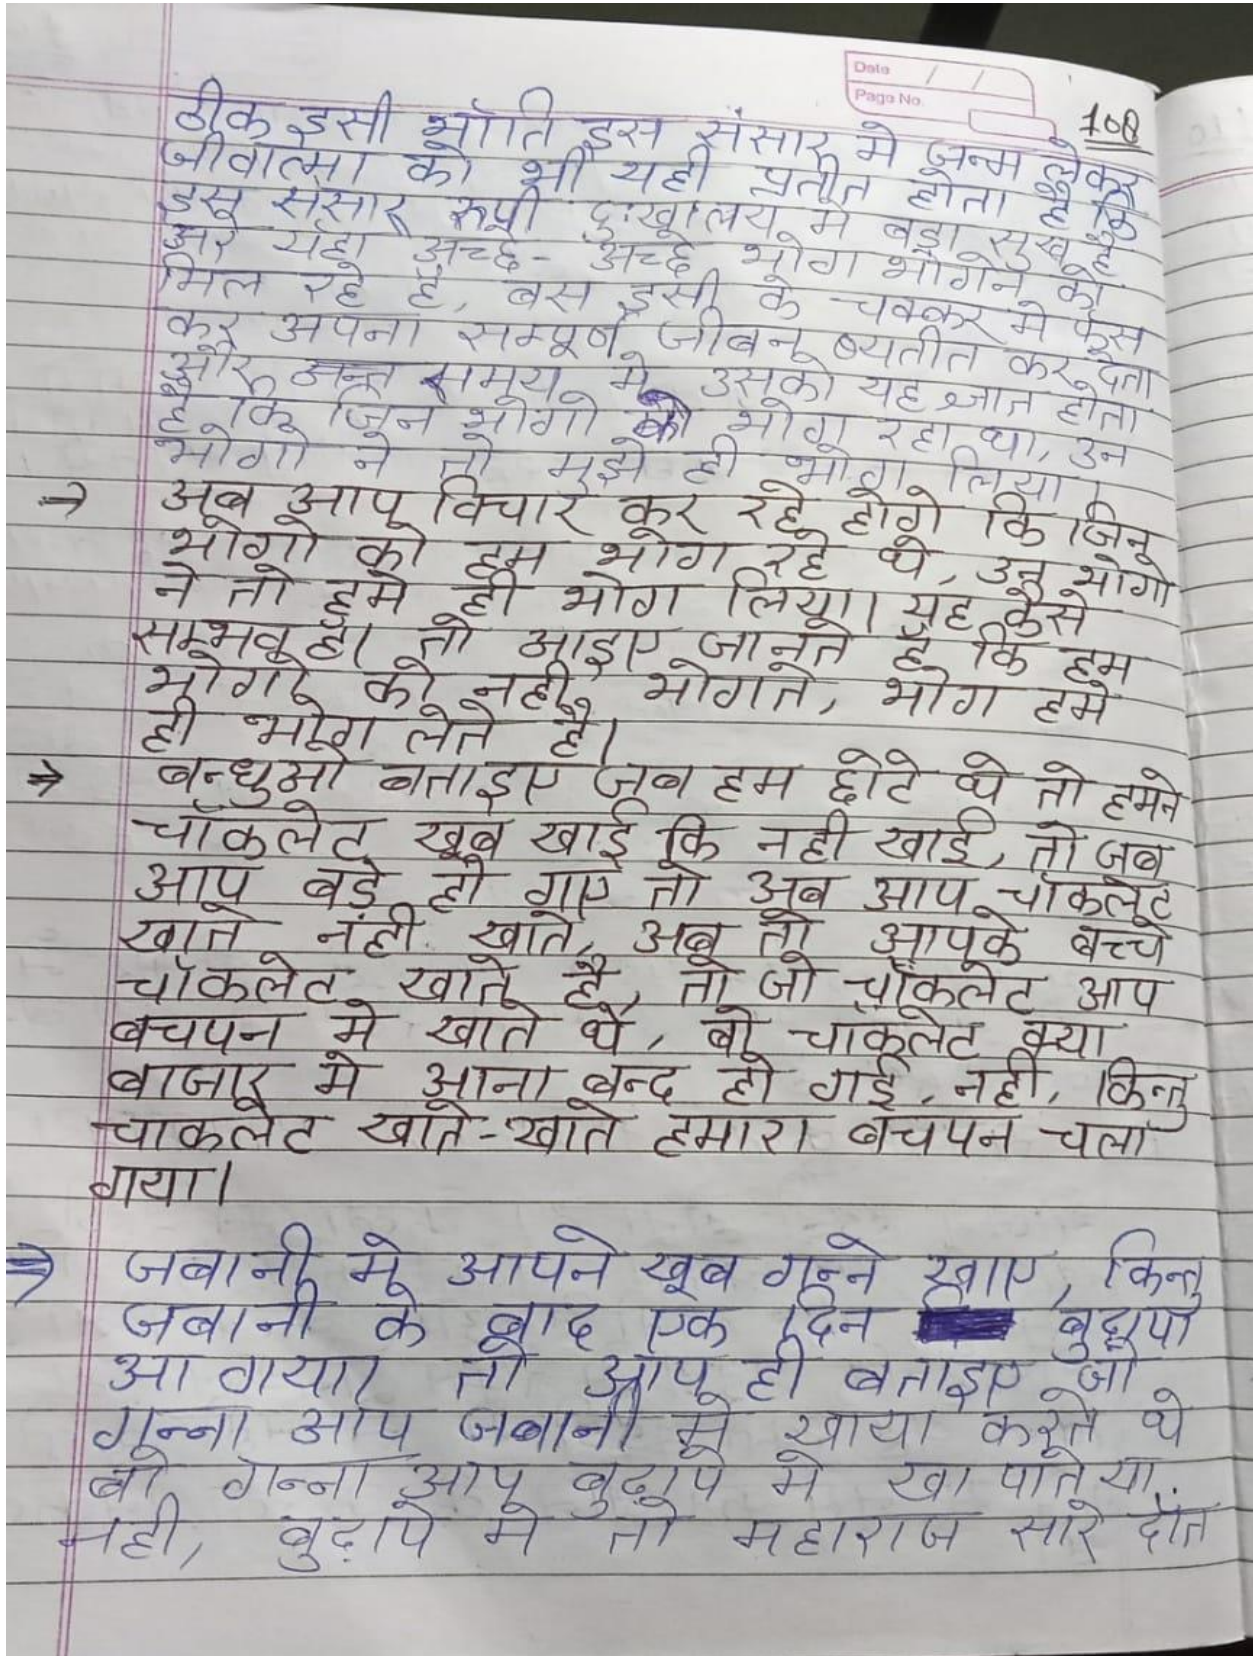 Date / /
Page No.
108
ठीक इसी भाँति इस संसार मे जन्म लेकर
जीवात्मा को भी यही प्रतीत होता है कि
इस संसार रूपी दुःखालय मे बड़ा सुख है
और यहाँ अच्छे-अच्छे भोग भोगने को
मिल रहे है, बस इसी के चक्कर मे फँस
कर अपना सम्पूर्ण जीबन ब्यतीत कर देता
और अन्त समय मे उसको यह ज्ञात होता
है कि जिन भोगो को भोग रहा था, उन
भोगो ने तो मुझे ही भोग लिया।
→ अब आप विचार कर रहे होगे कि जिन
भोगो को हम भोग रहे थे, उन भोगो
ने तो हमे ही भोग लिया। यह कैसे
सम्भव है। तो आइए जानते है कि हम
भोगो को नही भोगते, भोग हमे
ही भोग लेते है।
⇒ बन्धुओ बताइए जब हम छोटे थे तो हमने
चॉकलेट खूब खाई कि नही खाई, तो जब
आप बड़े हो गए तो अब आप चॉकलेट
खाते नंही खाते, अब तो आपके बच्चे
चॉकलेट खाते है, तो जो चॉकलेट आप
बचपन मे खाते थे, बो चॉकलेट क्या
बाजार मे आना बन्द हो गई, नही, किन्तु
चाकलेट खाते-खाते हमारा बचपन चला
गया।
⇒ जबानी मे आपने खूब गन्ने खाए, किन्तु
जबानी के बाद एक दिन बुढ़ापा
आ गया। तो आप ही बताइए जो
गन्ना आप जबानी मे खाया करते थे
बो गन्ना आप बुढ़ापे मे खा पाते या
नही, बुढ़ापे मे तो महाराज सारे दाँत